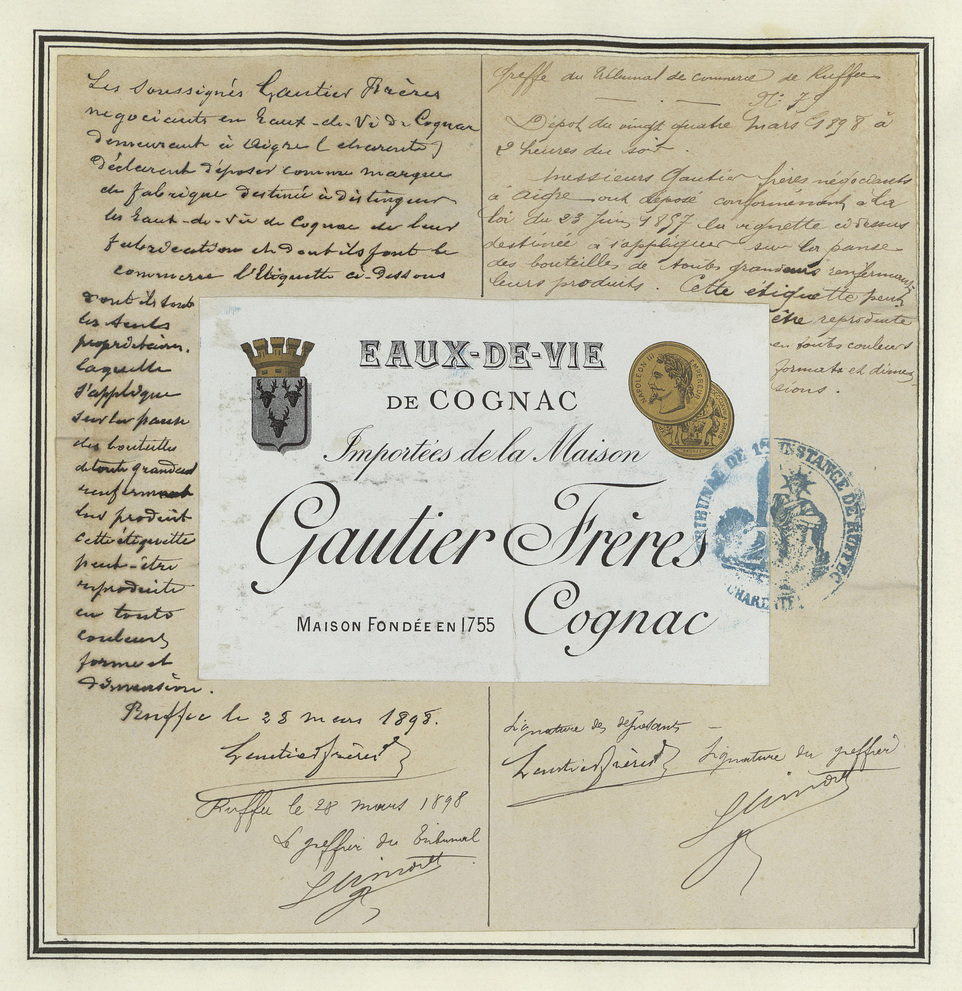 Les soussignés Gautier Frères
négociants en Eaux-de-Vie de Cognac
demeurant à Aigre (charente)
Déclarent déposer comme marque
de fabrique destinée à distinguer
les Eaux-de-Vie de Cognac de leur
fabrication et dont ils font le
commerce l'Etiquette ci-dessous
dont ils sont
les seuls
propriétaires.
laquelle
s'applique
sur la panse
des bouteilles
de toute grandeur
renfermant
leur produit
cette étiquette
peut-être
reproduite
en toute
couleurs
forme et
dimension.
Ruffec le 28 mars 1898.
Gautier frères
Ruffec le 28 mars 1898
Le greffier du Tribunal
Greffe du Tribunal de commerce de Ruffec
N° 75
Dépot du vingt quatre mars 1898 à
2 heures du soir.
Messieurs Gautier frères négociants
à Aigre ont déposé conformément à la
loi du 23 Juin 1857 la vignette ci dessus
destinée à s'appliquer sur la panse
des bouteilles de toutes grandeurs renfermant
leurs produits. Cette étiquette peut
être reproduite
en toutes couleurs
formats et dimen-
sions.
EAUX-DE-VIE
DE COGNAC
Importées de la Maison
Gautier Frères
Cognac
MAISON FONDÉE EN 1755
NAPOLÉON III EMPEREUR
TRIBUNAL DE 1RE INSTANCE DE RUFFEC
CHARENTE
Signature des déposants
Gautier frères
Signature du greffier